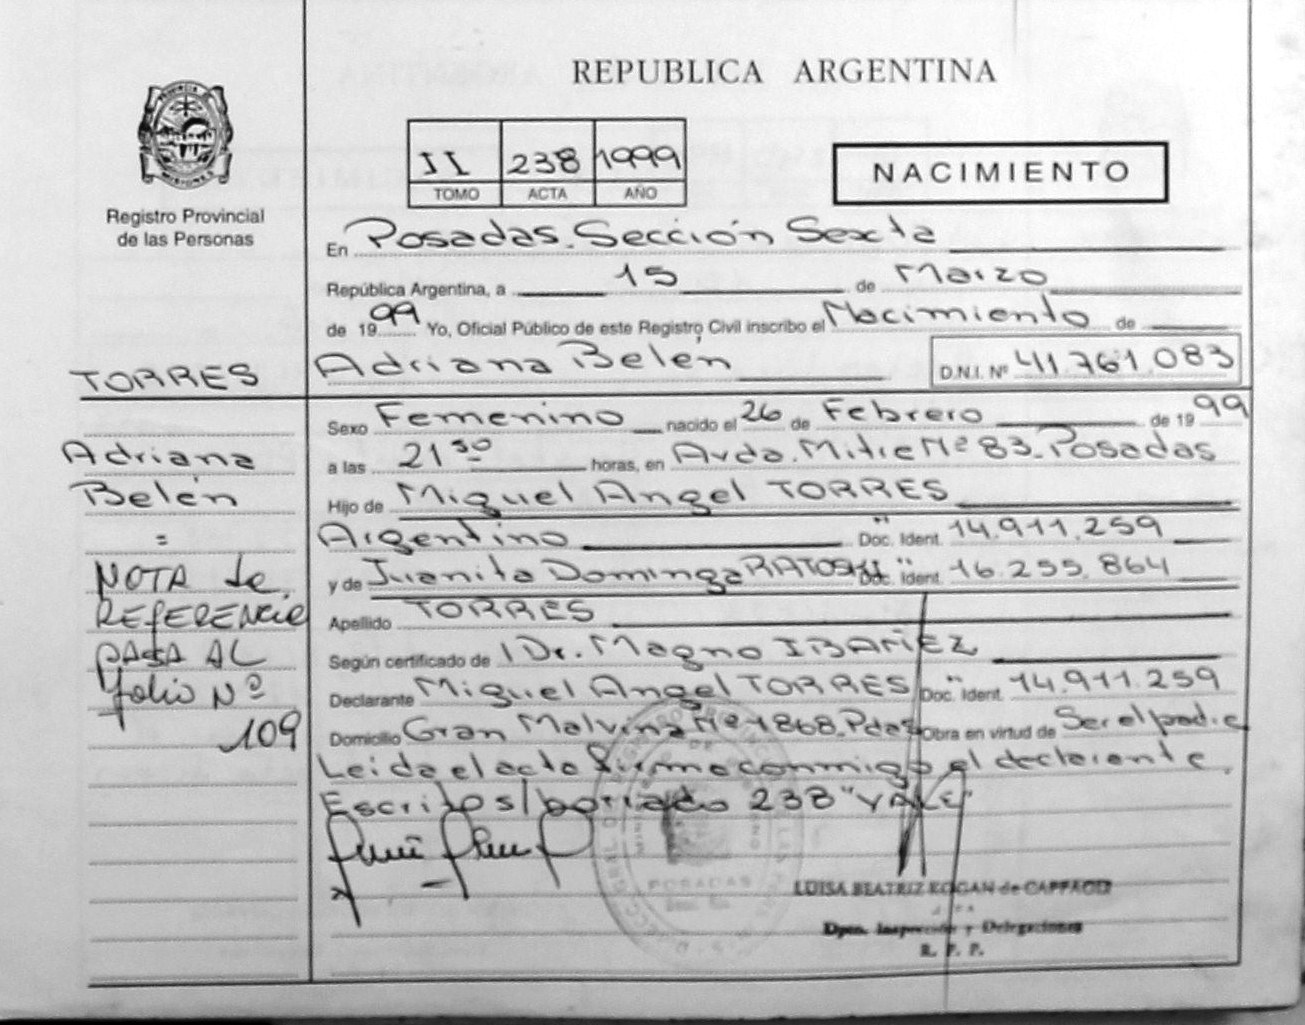 REPUBLICA ARGENTINA
PROVINCIA DE
MISIONES
Registro Provincial
de las Personas
II 238 1999
TOMO ACTA AÑO
NACIMIENTO
En Posadas. Sección Sexta
República Argentina, a 15 de Marzo
de 1999 Yo, Oficial Público de este Registro Civil inscribo el Nacimiento de
TORRES Adriana Belén D.N.I. Nº 41.761.083
Sexo Femenino nacido el 26 de Febrero de 1999
a las 21 50 horas, en Avda. Mitre Nº 83. Posadas
Hijo de Miguel Angel TORRES
Argentino Doc. Ident. 14.911.259
y de Juanita Dominga Doc. Ident. 16.255.864
Apellido TORRES
Según certificado de Dr. Magno IBAÑEZ
Declarante Miguel Angel TORRES Doc. Ident. 14.911.259
Domicilio Gran Malvina Nº 1868. Pdas Obra en virtud de Ser el padre
Leida el acta firma conmigo el declarante.
Escritos/borrado 238 "VALE"
Adriana
Belén
=
NOTA de
REFERENCIA
PASA AL
folio Nº
109
POSADAS
LUISA BEATRIZ KOGAN de
Dpto. Inspección y Delegaciones
R. P. P.